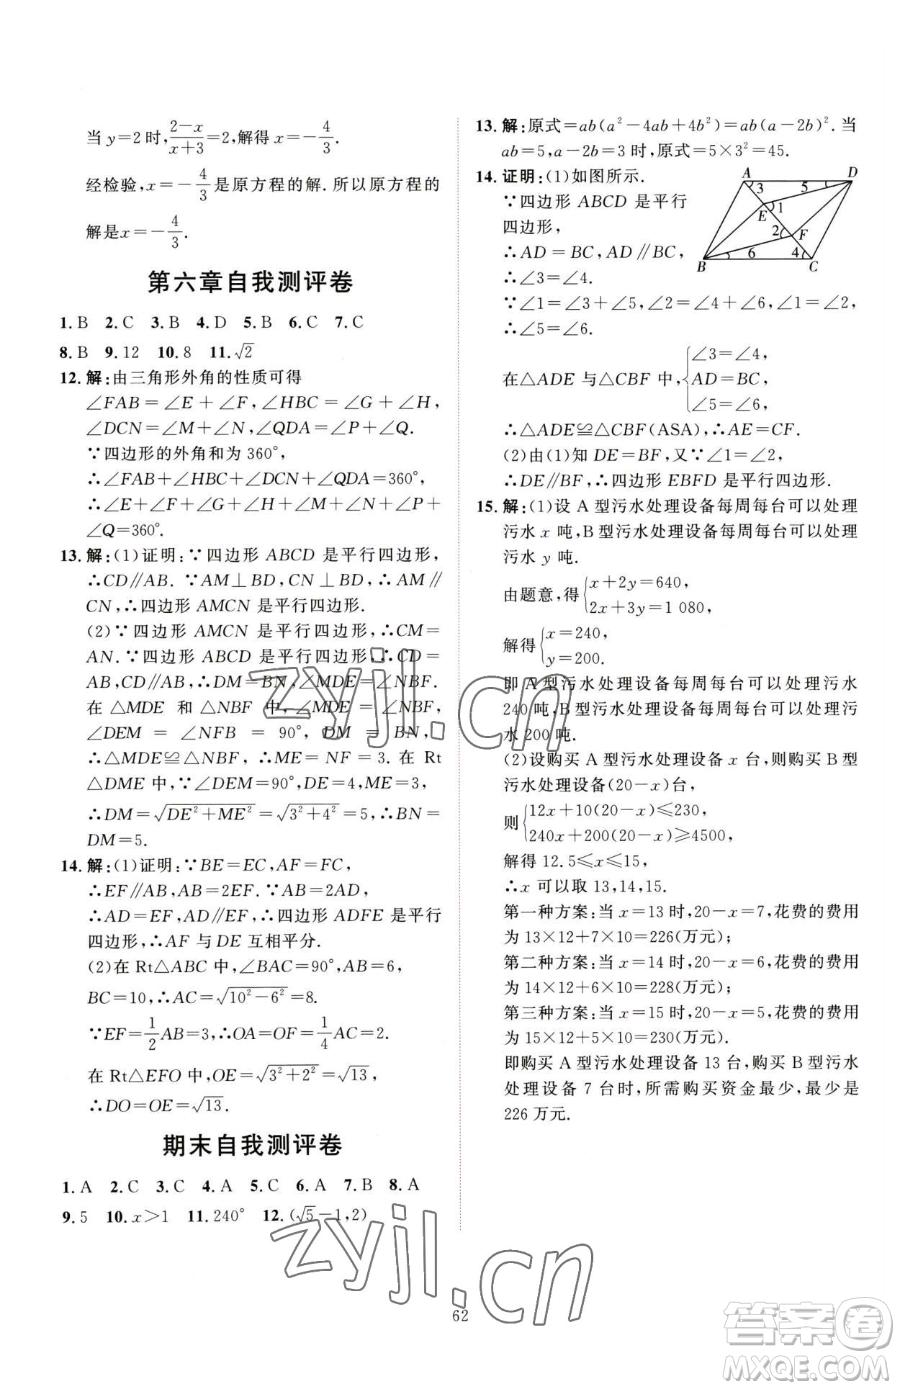 当 y=2 时,\frac{2-x}{x+3}=2,解得 x=-\frac{4}{3}.
经检验,x=-\frac{4}{3}是原方程的解.所以原方程的
解是x=-\frac{4}{3}.
第六章自我测评卷
1.B 2.C 3.B 4.D 5.B 6.C 7.C
8.B 9.12 10.8 11.√2
12.解:由三角形外角的性质可得
∠FAB=∠E+∠F,∠HBC=∠G+∠H,
∠DCN=∠M+∠N,∠QDA=∠P+∠Q.
∵四边形的外角和为 360°,
∴∠FAB+∠HBC+∠DCN+∠QDA=360°,
∴∠E+∠F+∠G+∠H+∠M+∠N+∠P+
∠Q=360°.
13.解:(1)证明:∵四边形 ABCD 是平行四边形,
∴CD∥AB.∵AM⊥BD,CN⊥BD,∴AM∥
CN,∴四边形 AMCN 是平行四边形.
(2)∵四边形 AMCN 是平行四边形,∴CM=
AN.∵四边形 ABCD 是平行四边形,∴CD=
AB,CD∥AB,∴DM=BN,∠MDE=∠NBF.
在 △MDE 和 △NBF 中,∠MDE = ∠NBF,
∠DEM = ∠NFB = 90°,DM=BN,
∴△MDE≌△NBF,∴ME=NF=3.在 Rt
△DME 中,∵∠DEM=90°,DE=4,ME=3,
∴DM=√(DE²+ME²)=√(3²+4²)=5,∴BN=
DM=5.
14.解:(1)证明:∵BE=EC,AF=FC,
∴EF∥AB,AB=2EF.∵AB=2AD,
∴AD=EF,∴四边形 ADFE 是平行
四边形,∴AF 与 DE 互相平分.
(2)在 Rt△ABC 中,∵∠BAC=90°,AB=6,
BC=10,∴AC=√(10²-6²)=8.
∵EF=\frac{1}{2}AB=3,∴OA=OF=\frac{1}{4}AC=2.
在 Rt△EFO 中,OE=√(3²+2²)=√13,
∴DO=OE=√13.
期末自我测评卷
1.A 2.C 3.C 4.A 5.C 6.A 7.B 8.A
9.5 10.x>1 11.240° 12.(√5-1,2)
13.解:原式=ab(a²-4ab+4b²)=ab(a-2b)².当
ab=5,a-2b=3 时,原式=5×3²=45.
14.证明:(1)如图所示.
∵四边形 ABCD 是平行
四边形,
∴AD=BC,AD∥BC,
∴∠3=∠4.
A 3 5 D
E 1
2 F
B 6 4 C
∵∠1=∠3+∠5,∠2=∠4+∠6,∠1=∠2,
∴∠5=∠6.
在△ADE 与△CBF 中,{∠3=∠4,
AD=BC,
∠5=∠6,
∴△ADE≌△CBF(ASA),∴AE=CF.
(2)由(1)知 DE=BF,又∵∠1=∠2,
∴DE∥BF,∴四边形 EBFD 是平行四边形.
15.解:(1)设 A 型污水处理设备每周每台可以处理
污水 x 吨,B 型污水处理设备每周每台可以处理
污水 y 吨.
由题意,得{x+2y=640,
2x+3y=1 080,
解得{x=240,
y=200.
即 A 型污水处理设备每周每台可以处理污水
240 吨,B 型污水处理设备每周每台可以处理污
水 200 吨.
(2)设购买 A 型污水处理设备 x 台,则购买 B 型
污水处理设备(20-x)台,
则{12x+10(20-x)≤230,
240x+200(20-x)≥4500,
解得 12.5≤x≤15.
∴x 可以取 13,14,15.
第一种方案:当 x=13 时,20-x=7,花费的费用
为 13×12+7×10=226(万元);
第二种方案:当 x=14 时,20-x=6,花费的费用
为 14×12+6×10=228(万元);
第三种方案:当 x=15 时,20-x=5,花费的费用
为 15×12+5×10=230(万元).
即购买 A 型污水处理设备 13 台,购买 B 型污水
处理设备 7 台时,所需购买资金最少,最少是
226 万元.
62
zyjl.cn
zyjl.cn
答案圈
MXQE.COM